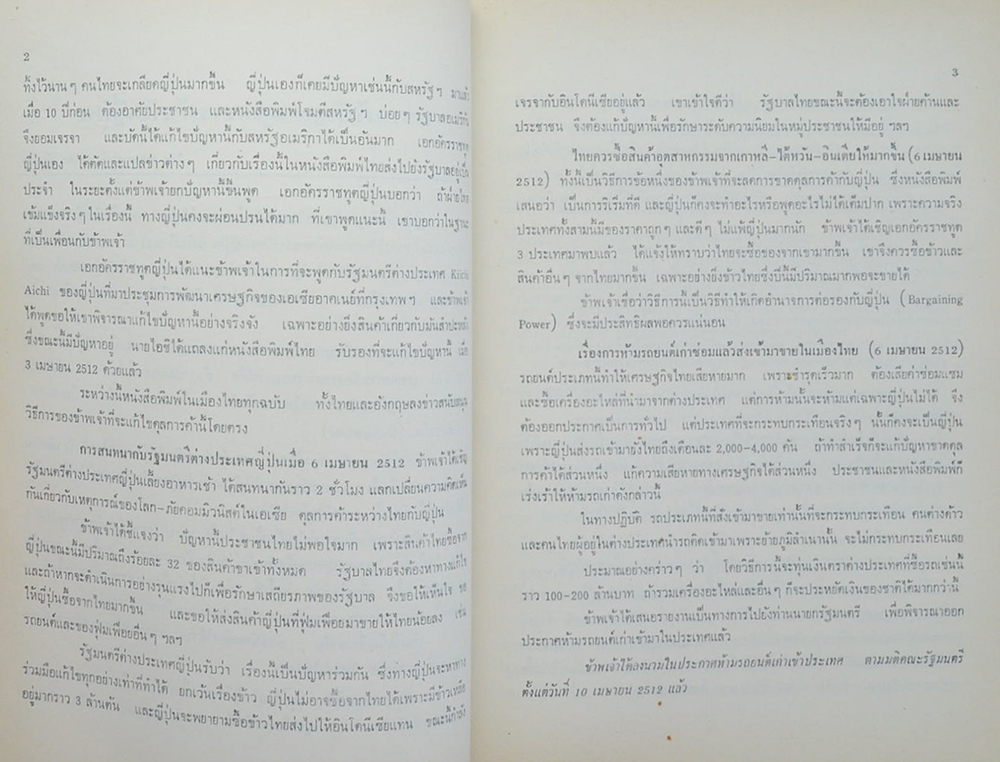 2
ทิ้งไว้นานๆ คนไทยจะเกลียดญี่ปุ่นมากขึ้น ญี่ปุ่นเองก็เคยมีปัญหาเช่นนี้กับสหรัฐฯ มาแล้ว
เมื่อ 10 ปีก่อน ต้องอาศัยประชาชน และหนังสือพิมพ์โจมตีสหรัฐฯ บ่อยๆ รัฐบาลอเมริกัน
จึงยอมเจรจา และบัดนี้ได้แก้ไขปัญหานี้กับสหรัฐอเมริกาได้เป็นอันมาก เอกอัครราชทูต
ญี่ปุ่นเอง ได้ตัดและแปลข่าวต่างๆ เกี่ยวกับเรื่องนี้ในหนังสือพิมพ์ไทยส่งไปยังรัฐบาลอยู่เป็น
ประจำ ในระยะตั้งแต่ข้าพเจ้ายกปัญหานี้ขึ้นพูด เอกอัครราชทูตญี่ปุ่นบอกว่า ถ้าฝ่ายไทย
เข้มแข็งจริงๆ ในเรื่องนี้ ทางญี่ปุ่นคงจะผ่อนปรนได้มาก ที่เขาพูดแนะนี้ เขาบอกว่าในฐานะ
ที่เป็นเพื่อนกับข้าพเจ้า
เอกอัครราชทูตญี่ปุ่นได้แนะข้าพเจ้าในการที่จะพูดกับรัฐมนตรีต่างประเทศ Kiichi
Aichi ของญี่ปุ่นที่มาประชุมการพัฒนาเศรษฐกิจของเอเซียอาคเนย์ที่กรุงเทพฯ และข้าพเจ้า
ได้พูดขอให้เขาพิจารณาแก้ไขปัญหานี้อย่างจริงจัง เฉพาะอย่างยิ่งสินค้าเกี่ยวกับมันสำปะหลัง
ซึ่งขณะนี้มีปัญหาอยู่ นายไอชิได้แถลงแก่หนังสือพิมพ์ไทย รับรองที่จะแก้ไขปัญหานี้ เมื่อ
3 เมษายน 2512 ด้วยแล้ว
ระหว่างนี้หนังสือพิมพ์ในเมืองไทยทุกฉบับ ทั้งไทยและอังกฤษลงข่าวสนับสนุน
วิธีการของข้าพเจ้าที่จะแก้ไขดุลการค้านี้โดยตรง
การสนทนากับรัฐมนตรีต่างประเทศญี่ปุ่นเมื่อ 6 เมษายน 2512 ข้าพเจ้าได้เชิญ
รัฐมนตรีต่างประเทศญี่ปุ่นเลี้ยงอาหารเช้า ได้สนทนากันราว 2 ชั่วโมง แลกเปลี่ยนความคิดเห็น
กันเกี่ยวกับเหตุการณ์ของโลก-ภัยคอมมิวนิสต์ในเอเซีย ดุลการค้าระหว่างไทยกับญี่ปุ่น
ข้าพเจ้าได้ชี้แจงว่า ปัญหานี้ประชาชนไทยไม่พอใจมาก เพราะสินค้าไทยซื้อจาก
ญี่ปุ่นขณะนี้มีปริมาณถึงร้อยละ 32 ของสินค้าขาเข้าทั้งหมด รัฐบาลไทยจึงต้องหาทางแก้ไข
และถ้าหากจะดำเนินการอย่างรุนแรงไปก็เพื่อรักษาเสถียรภาพของรัฐบาล จึงขอให้เห็นใจ ขอ
ให้ญี่ปุ่นซื้อจากไทยมากขึ้น และขอให้ส่งสินค้าญี่ปุ่นที่ฟุ่มเฟือยมาขายให้ไทยน้อยลง เช่น
รถยนต์และของฟุ่มเฟือยอื่นๆ ฯลฯ
รัฐมนตรีต่างประเทศญี่ปุ่นรับว่า เรื่องนี้เป็นปัญหาร่วมกัน ซึ่งทางญี่ปุ่นจะหาทาง
ร่วมมือแก้ไขทุกอย่างเท่าที่ทำได้ ยกเว้นเรื่องข้าว ญี่ปุ่นไม่อาจซื้อจากไทยได้เพราะมีข้าวเหลือ
อยู่มากราว 3 ล้านตัน และญี่ปุ่นจะพยายามซื้อข้าวไทยส่งไปให้อินโดนีเซียแทน ขณะนี้กำลัง
3
เจรจากับอินโดนีเซียอยู่แล้ว เขาเข้าใจดีว่า รัฐบาลไทยขณะนี้จะต้องเอาใจฝ่ายค้านและ
ประชาชน จึงต้องแก้ปัญหานี้เพื่อรักษาระดับความนิยมในหมู่ประชาชนให้มีอยู่ ฯลฯ
ไทยควรซื้อสินค้าอุตสาหกรรมจากเกาหลี-ไต้หวัน-อินเดียให้มากขึ้น (6 เมษายน
2512) ทั้งนี้เป็นวิธีการข้อหนึ่งของข้าพเจ้าที่จะลดการขาดดุลการค้ากับญี่ปุ่น ซึ่งหนังสือพิมพ์
เสนอว่า เป็นการริเริ่มที่ดี และญี่ปุ่นก็คงจะทำอะไรหรือพูดอะไรไม่ได้เต็มปาก เพราะความจริง
ประเทศทั้งสามนี้มีของราคาถูกๆ และดีๆ ไม่แพ้ญี่ปุ่นมากนัก ข้าพเจ้าได้เชิญเอกอัครราชทูต
3 ประเทศมาพบแล้ว ได้แจ้งให้ทราบว่าไทยจะซื้อของจากเขามากขึ้น เขาจึงควรซื้อข้าวและ
สินค้าอื่นๆ จากไทยมากขึ้น เฉพาะอย่างยิ่งข้าวไทยซึ่งปีนี้มีปริมาณมากพอจะขายได้
ข้าพเจ้าเชื่อว่าวิธีการนี้เป็นวิธีทำให้เกิดอำนาจการต่อรองกับญี่ปุ่น (Bargaining
Power) ซึ่งจะมีประสิทธิผลพอควรแน่นอน
เรื่องการห้ามรถยนต์เก่าซ่อมแล้วส่งเข้ามาขายในเมืองไทย (6 เมษายน 2512)
รถยนต์ประเภทนี้ทำให้เศรษฐกิจไทยเสียหายมาก เพราะชำรุดเร็วมาก ต้องเสียค่าซ่อมแซม
และซื้อเครื่องอะไหล่ที่นำมาจากต่างประเทศ แต่การห้ามนั้นจะห้ามแต่เฉพาะญี่ปุ่นไม่ได้ จึง
ต้องออกประกาศเป็นการทั่วไป แต่ประเทศที่จะกระทบกระเทือนจริงๆ นั้นก็คงจะเป็นญี่ปุ่น
เพราะญี่ปุ่นส่งรถเข้ามายังไทยถึงเดือนละ 2,000-4,000 คัน ถ้าทำสำเร็จก็จะแก้ปัญหาขาดดุล
การค้าได้ส่วนหนึ่ง แก้ความเสียหายทางเศรษฐกิจได้ส่วนหนึ่ง ประชาชนและหนังสือพิมพ์ก็
เร่งเร้าให้ห้ามรถเก่าดังกล่าวนี้
ในทางปฏิบัติ รถประเภทนี้ที่สั่งเข้ามาขายเท่านั้นที่จะกระทบกระเทือน คนต่างด้าว
และคนไทยผู้อยู่ในต่างประเทศนำรถติดเข้ามาเพราะย้ายภูมิลำเนานั้น จะไม่กระทบกระเทือนเลย
ประมาณอย่างคร่าวๆ ว่า โดยวิธีการนี้จะทุ่นเงินตราต่างประเทศที่ซื้อรถเช่นนี้
ราว 100-200 ล้านบาท ถ้ารวมเครื่องอะไหล่และอื่นๆ ก็จะประหยัดเงินของชาติได้มากกว่านี้
ข้าพเจ้าได้เสนอรายงานเป็นทางการไปยังท่านนายกรัฐมนตรี เพื่อพิจารณาออก
ประกาศห้ามรถยนต์เก่าเข้ามาในประเทศแล้ว
ข้าพเจ้าได้ลงนามในประกาศห้ามรถยนต์เก่าเข้าประเทศ ตามมติคณะรัฐมนตรี
ตั้งแต่วันที่ 10 เมษายน 2512 แล้ว